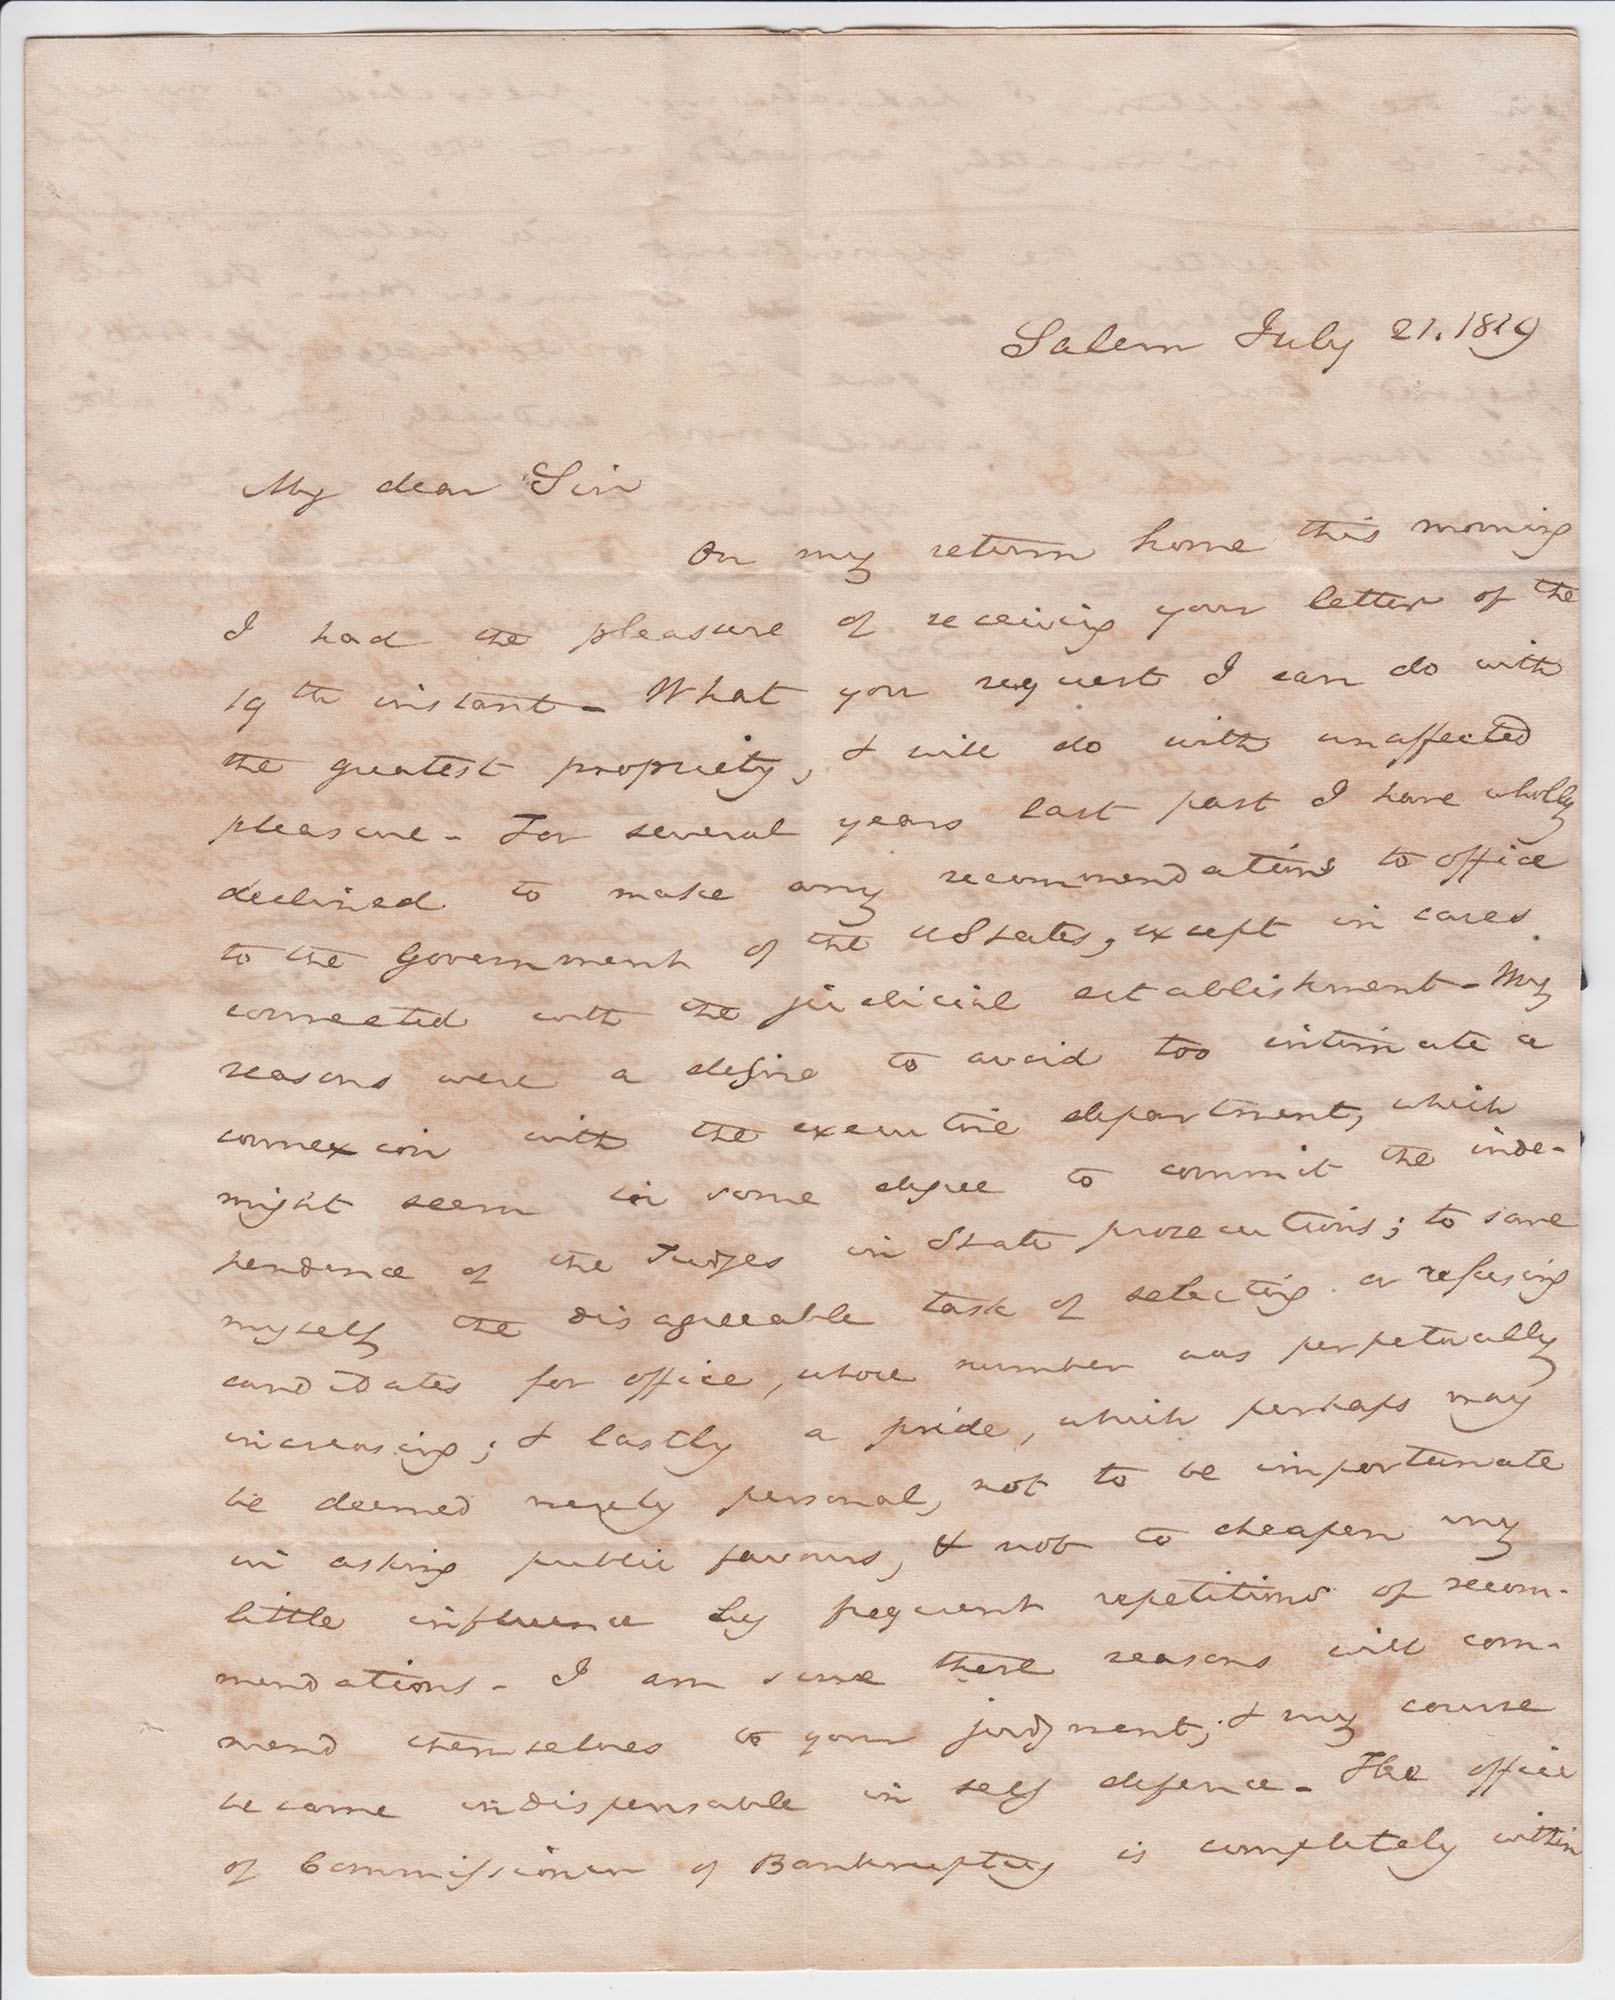 Salem July 21. 1819
My dear Sir
On my return home this morning
I had the pleasure of receiving your letter of the
19th instant - What you request I can do with
the greatest propriety, & will do with unaffected
pleasure - For several years last past I have wholly
declined to make any recommendations to office
to the Government of the UStates, except in cases
connected with the judicial establishment - My
reasons were a desire to avoid too intimate a
connexion with the executive department, which
might seem in some degree to commit the inde-
pendence of the Judges in State prosecutions; to save
myself the disagreeable task of selecting or refusing
candidates for office, whose number was perpetually
increasing; & lastly a pride, which perhaps may
be deemed merely personal, not to be importunate
in asking public favours, & not to cheapen my
little influence by frequent repetitions of recom-
mendations - I am sure these reasons will com-
mend themselves to your judgment; & my course
became indispensable in self defence - The office
of Commissioner of Bankruptcy is completely within